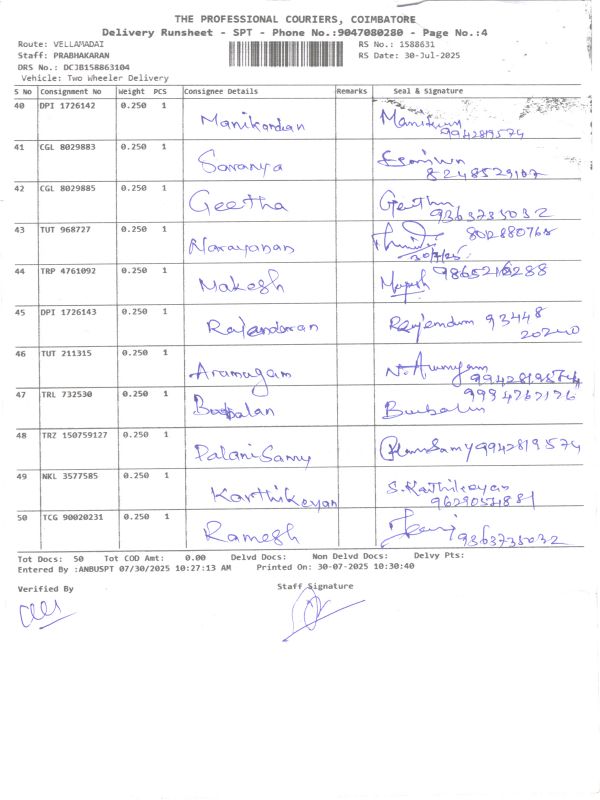 THE PROFESSIONAL COURIERS, COIMBATORE
Delivery Runsheet - SPT - Phone No.:9047080280 - Page No.:4
Route: VELLAMADAI RS No.: 1588631
Staff: PRABHAKARAN RS Date: 30-Jul-2025
DRS No.: DCJB158863104
Vehicle: Two Wheeler Delivery
S No Consignment No Weight PCS Consignee Details Remarks Seal & Signature
40 DPI 1726142 0.250 1 Manikandan
9942819574
41 CGL 8029883 0.250 1 Saranya
8248529107
42 CGL 8029885 0.250 1 Geetha Geetha
9363735032
43 TUT 968727 0.250 1 Narayanan 8012880768
30/7/25
44 TRP 4761092 0.250 1 Makesh
45 DPI 1726143 0.250 1 93448
20240
46 TUT 211315 0.250 1 Arumugam N. Arumugam
9942819574
47 TRL 732530 0.250 1 9994767176
48 TRZ 150759127 0.250 1 PalaniSamy 9942819574
49 NKL 3577585 0.250 1 Karthikeyan S. Karthikeyan
50 TCG 90020231 0.250 1 Ramesh 9363735032
Tot Docs: 50 Tot COD Amt: 0.00 Delvd Docs: Non Delvd Docs: Delvy Pts:
Entered By :ANBUSPT 07/30/2025 10:27:13 AM Printed On: 30-07-2025 10:30:40
Verified By Staff Signature